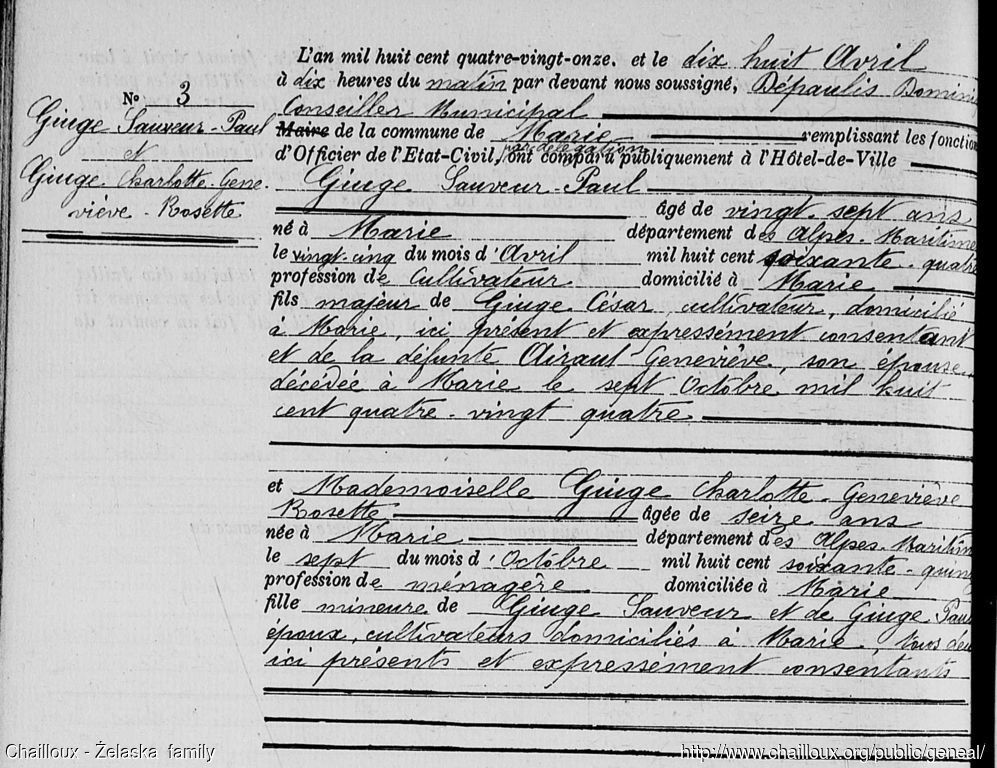 L'an mil huit cent quatre-vingt-onze. et le dix huit Avril
à dix heures du matin par devant nous soussigné, Dépaulis Domini
Conseiller Municipal
Maire de la commune de Marie remplissant les fonction
par délégation
d'Officier de l'Etat-Civil, ont comparu publiquement à l'Hôtel-de-Ville
N° 3
Giuge Sauveur-Paul
et
Giuge. Charlotte-Gene-
viève-Rosette
Giuge Sauveur-Paul
âgé de vingt-sept ans
né à Marie département des Alpes-Maritime
le vingt-cinq du mois d'Avril mil huit cent soixante-quatre
profession de Cultivateur domicilié à Marie
fils majeur de Giuge César, cultivateur, domicilié
à Marie, ici présent et expressément consentant
et de la défunte Airaut Geneviève, son épouse,
décédée à Marie le sept Octobre mil huit
cent quatre-vingt quatre
et Mademoiselle Giuge Charlotte-Geneviève
Rosette âgée de seize ans
née à Marie département des Alpes-Maritim
le sept du mois d'Octobre mil huit cent soixante-quin
profession de ménagère domiciliée à Marie
fille mineure de Giuge Sauveur et de Giuge Paul
époux, cultivateurs domiciliés à Marie, tous deu
ici présents et expressement consentants
Chailloux - Żelaska family
http://www.chailloux.org/public/geneal/